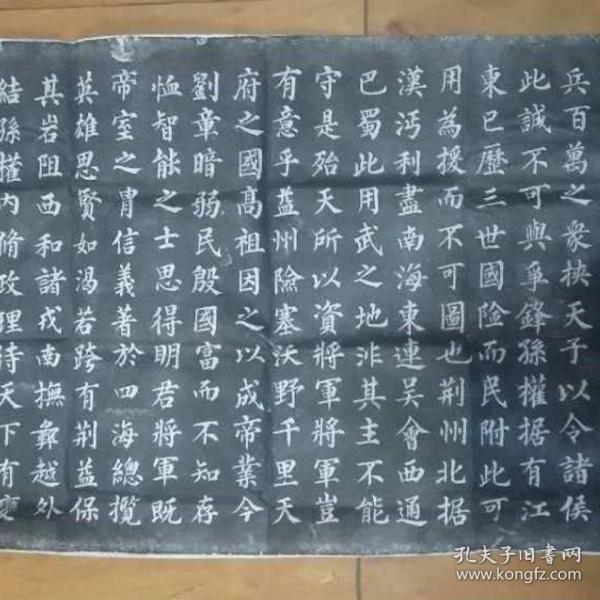 兵百萬之衆挾天子以令諸侯
此誠不可與爭鋒孫權据有江
東已歷三世國險而民附此可
用為援而不可圖也荆州北据
漢沔利盡南海東連吴會西通
巴蜀此用武之地非其主不能
守是殆天所以資將軍將軍豈
有意乎益州險塞沃野千里天
府之國高祖因之以成帝業今
劉章暗弱民殷國富而不知存
恤智能之士思得明君將軍既
帝室之胄信義著於四海總攬
英雄思賢如渴若跨有荆益保
其岩阻西和諸戎南撫彝越外
結孫權内脩政理待天下有變
孔夫子旧书网
www.kongfz.com